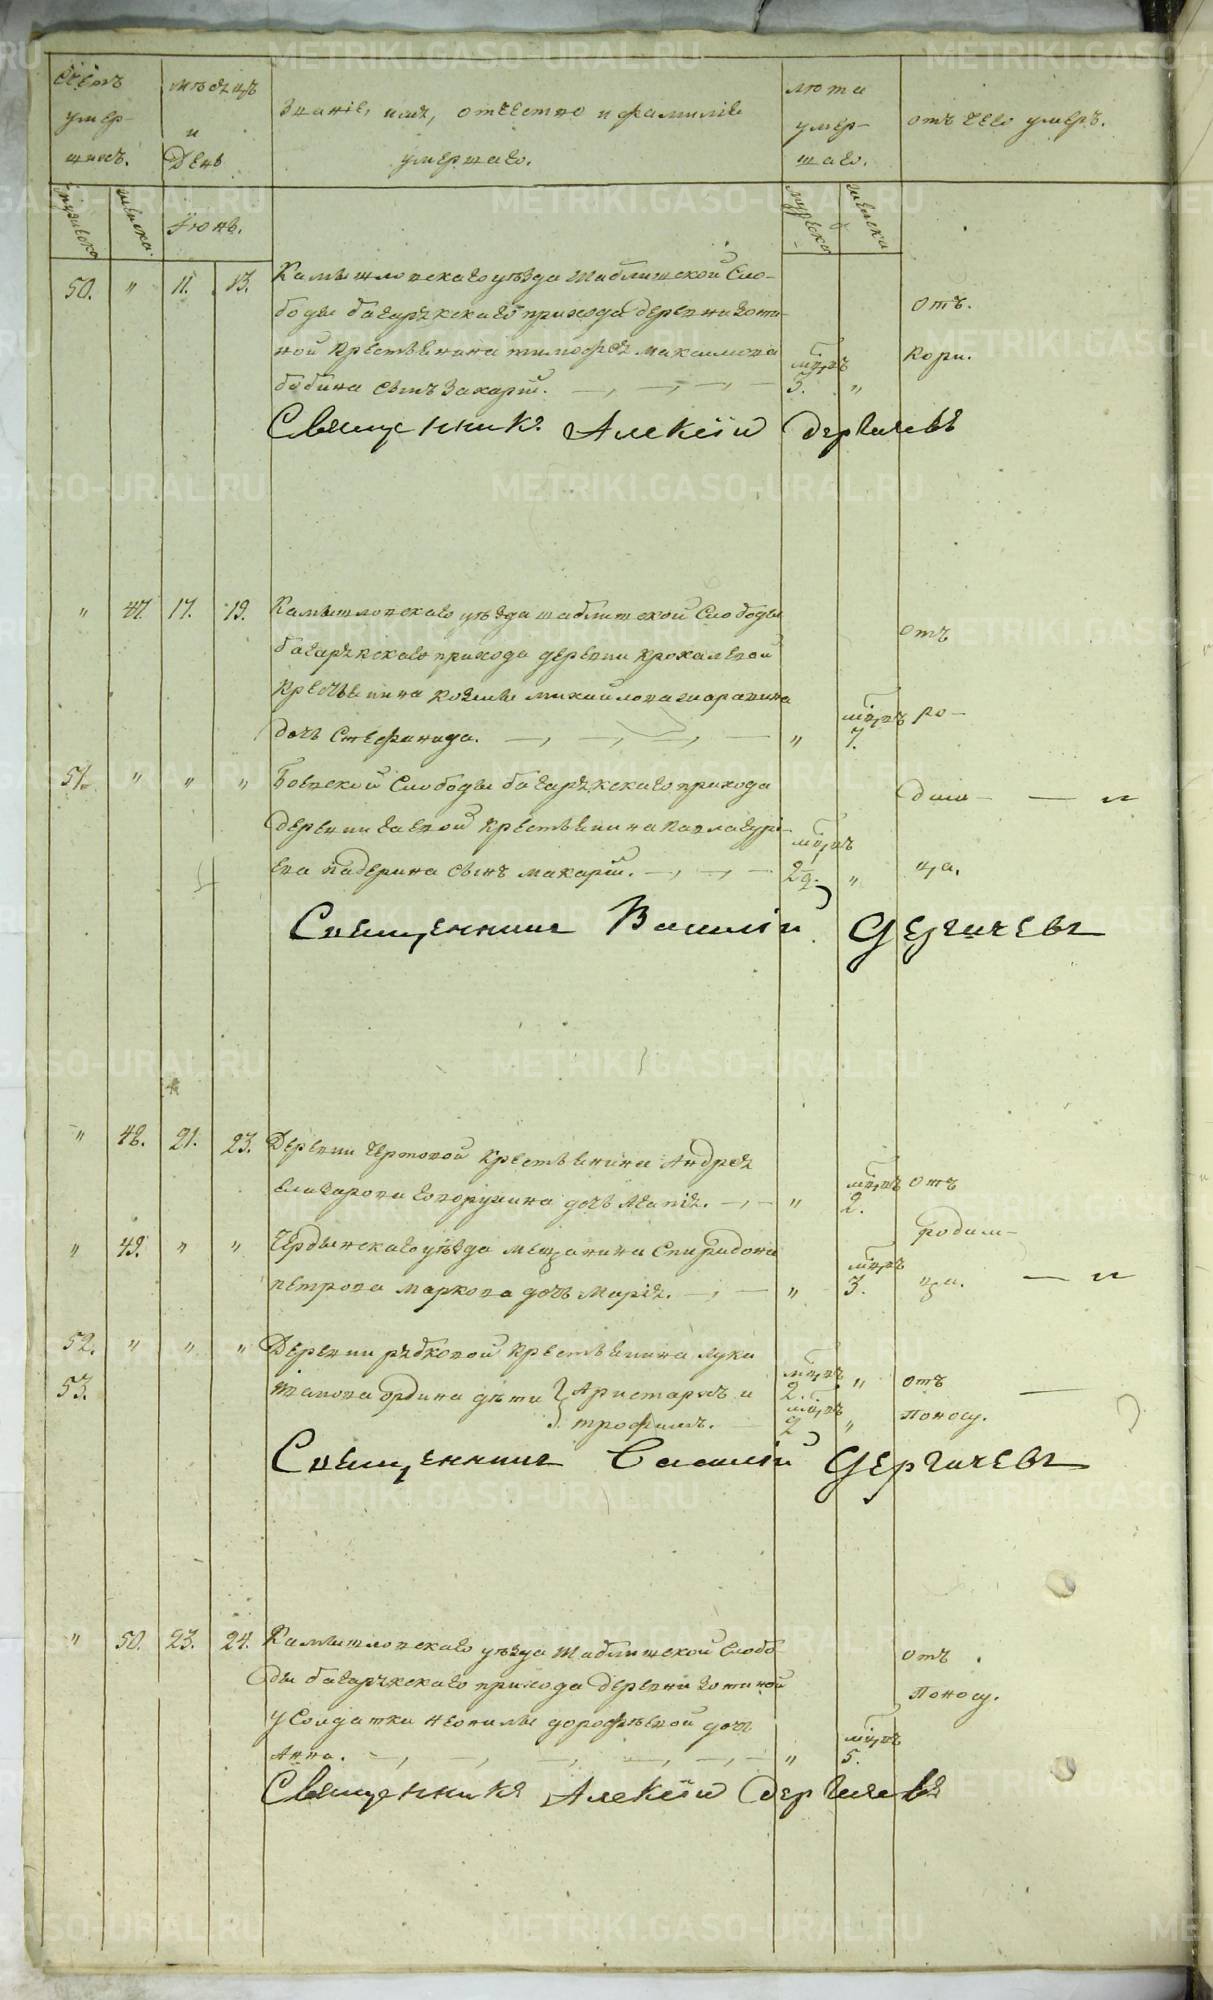 Счетъ умер- шихъ.
мѣсяцъ и День
Званіе, имя, отчество и фамилія умершаго.
лѣта умер- шаго.
отъ чего умеръ.
мужеска
женска
Іюнь.
мужеска
женска
50. " 11. 13. Камышловскаго уѣзда Шаблишской Сло-
боды багарякскаго прихода деревни Зоти-
ной Крестьянина тимофея максимова
бабина сынъ Захарій. мѣ,цъ 3. "
отъ.
кори.
Священникъ Алексій Дергачевъ
" 47. 17. 19. Камышловскаго уѣзда шаблишской Слободы
багарякскаго прихода деревни крохалевой
Крестьянина козмы михайлова
дочь Стефанида. " мѣ,цъ 7.
отъ
ро-
51. " " " Боевской Слободы багарякскаго прихода
деревни гаевой Крестьянина Павла гурі-
ева падерина сынъ макарій. мѣ,цъ "
дим- — и
ца.
Священникъ Василій Дергачевъ
" 48. 21. 23. Деревни чертовой Крестьянина Андрея
елизарова дочь Агапія. " мѣ,цъ 2.
отъ
" 49. " " Чердынскаго уѣзда мещанина Спиридона
петрова маркова дочь Марія. " мѣ,цъ 3.
родим-
ца. — и
52. " " " Деревни рябковой Крестьянина луки
53. дѣти { Аристархъ и
трофимъ.
мѣ,цъ 2. "
мѣ,цъ 2 "
отъ
поносу.
Священникъ Василій Дергачевъ
" 50. 23. 24. Камышловскаго уѣзда Шаблишской Слобо-
ды багарякскаго прихода деревни зотиной
у Солдатки неонилы дорофѣевой дочь
Анна. " мѣ,цъ 5.
отъ
поносу.
Священникъ Алексій Дергачевъ
METRIKI.GASO-URAL.RU